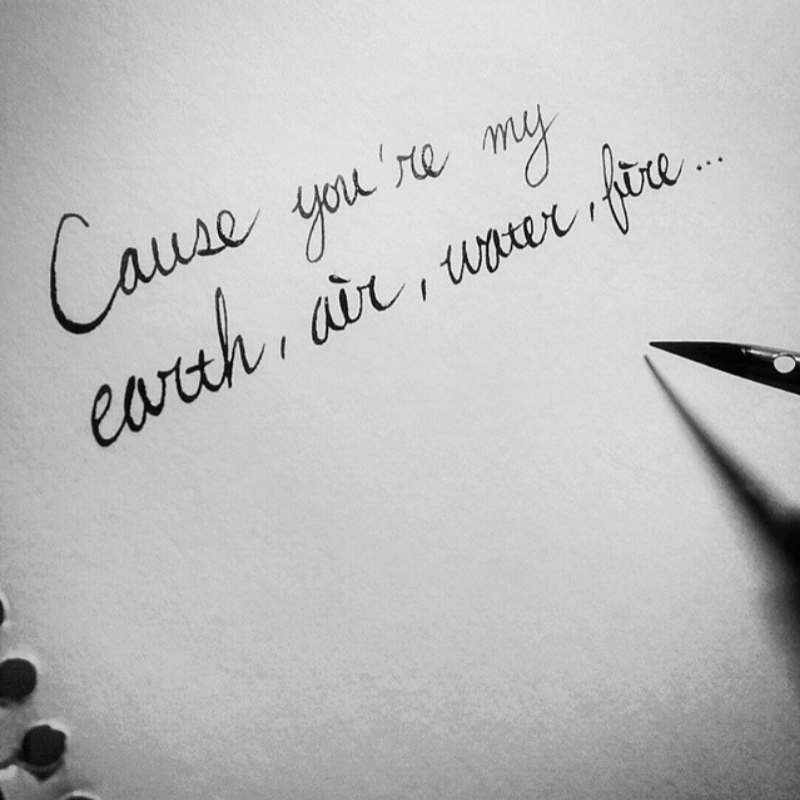 Cause you're my
earth, air, water, fire...